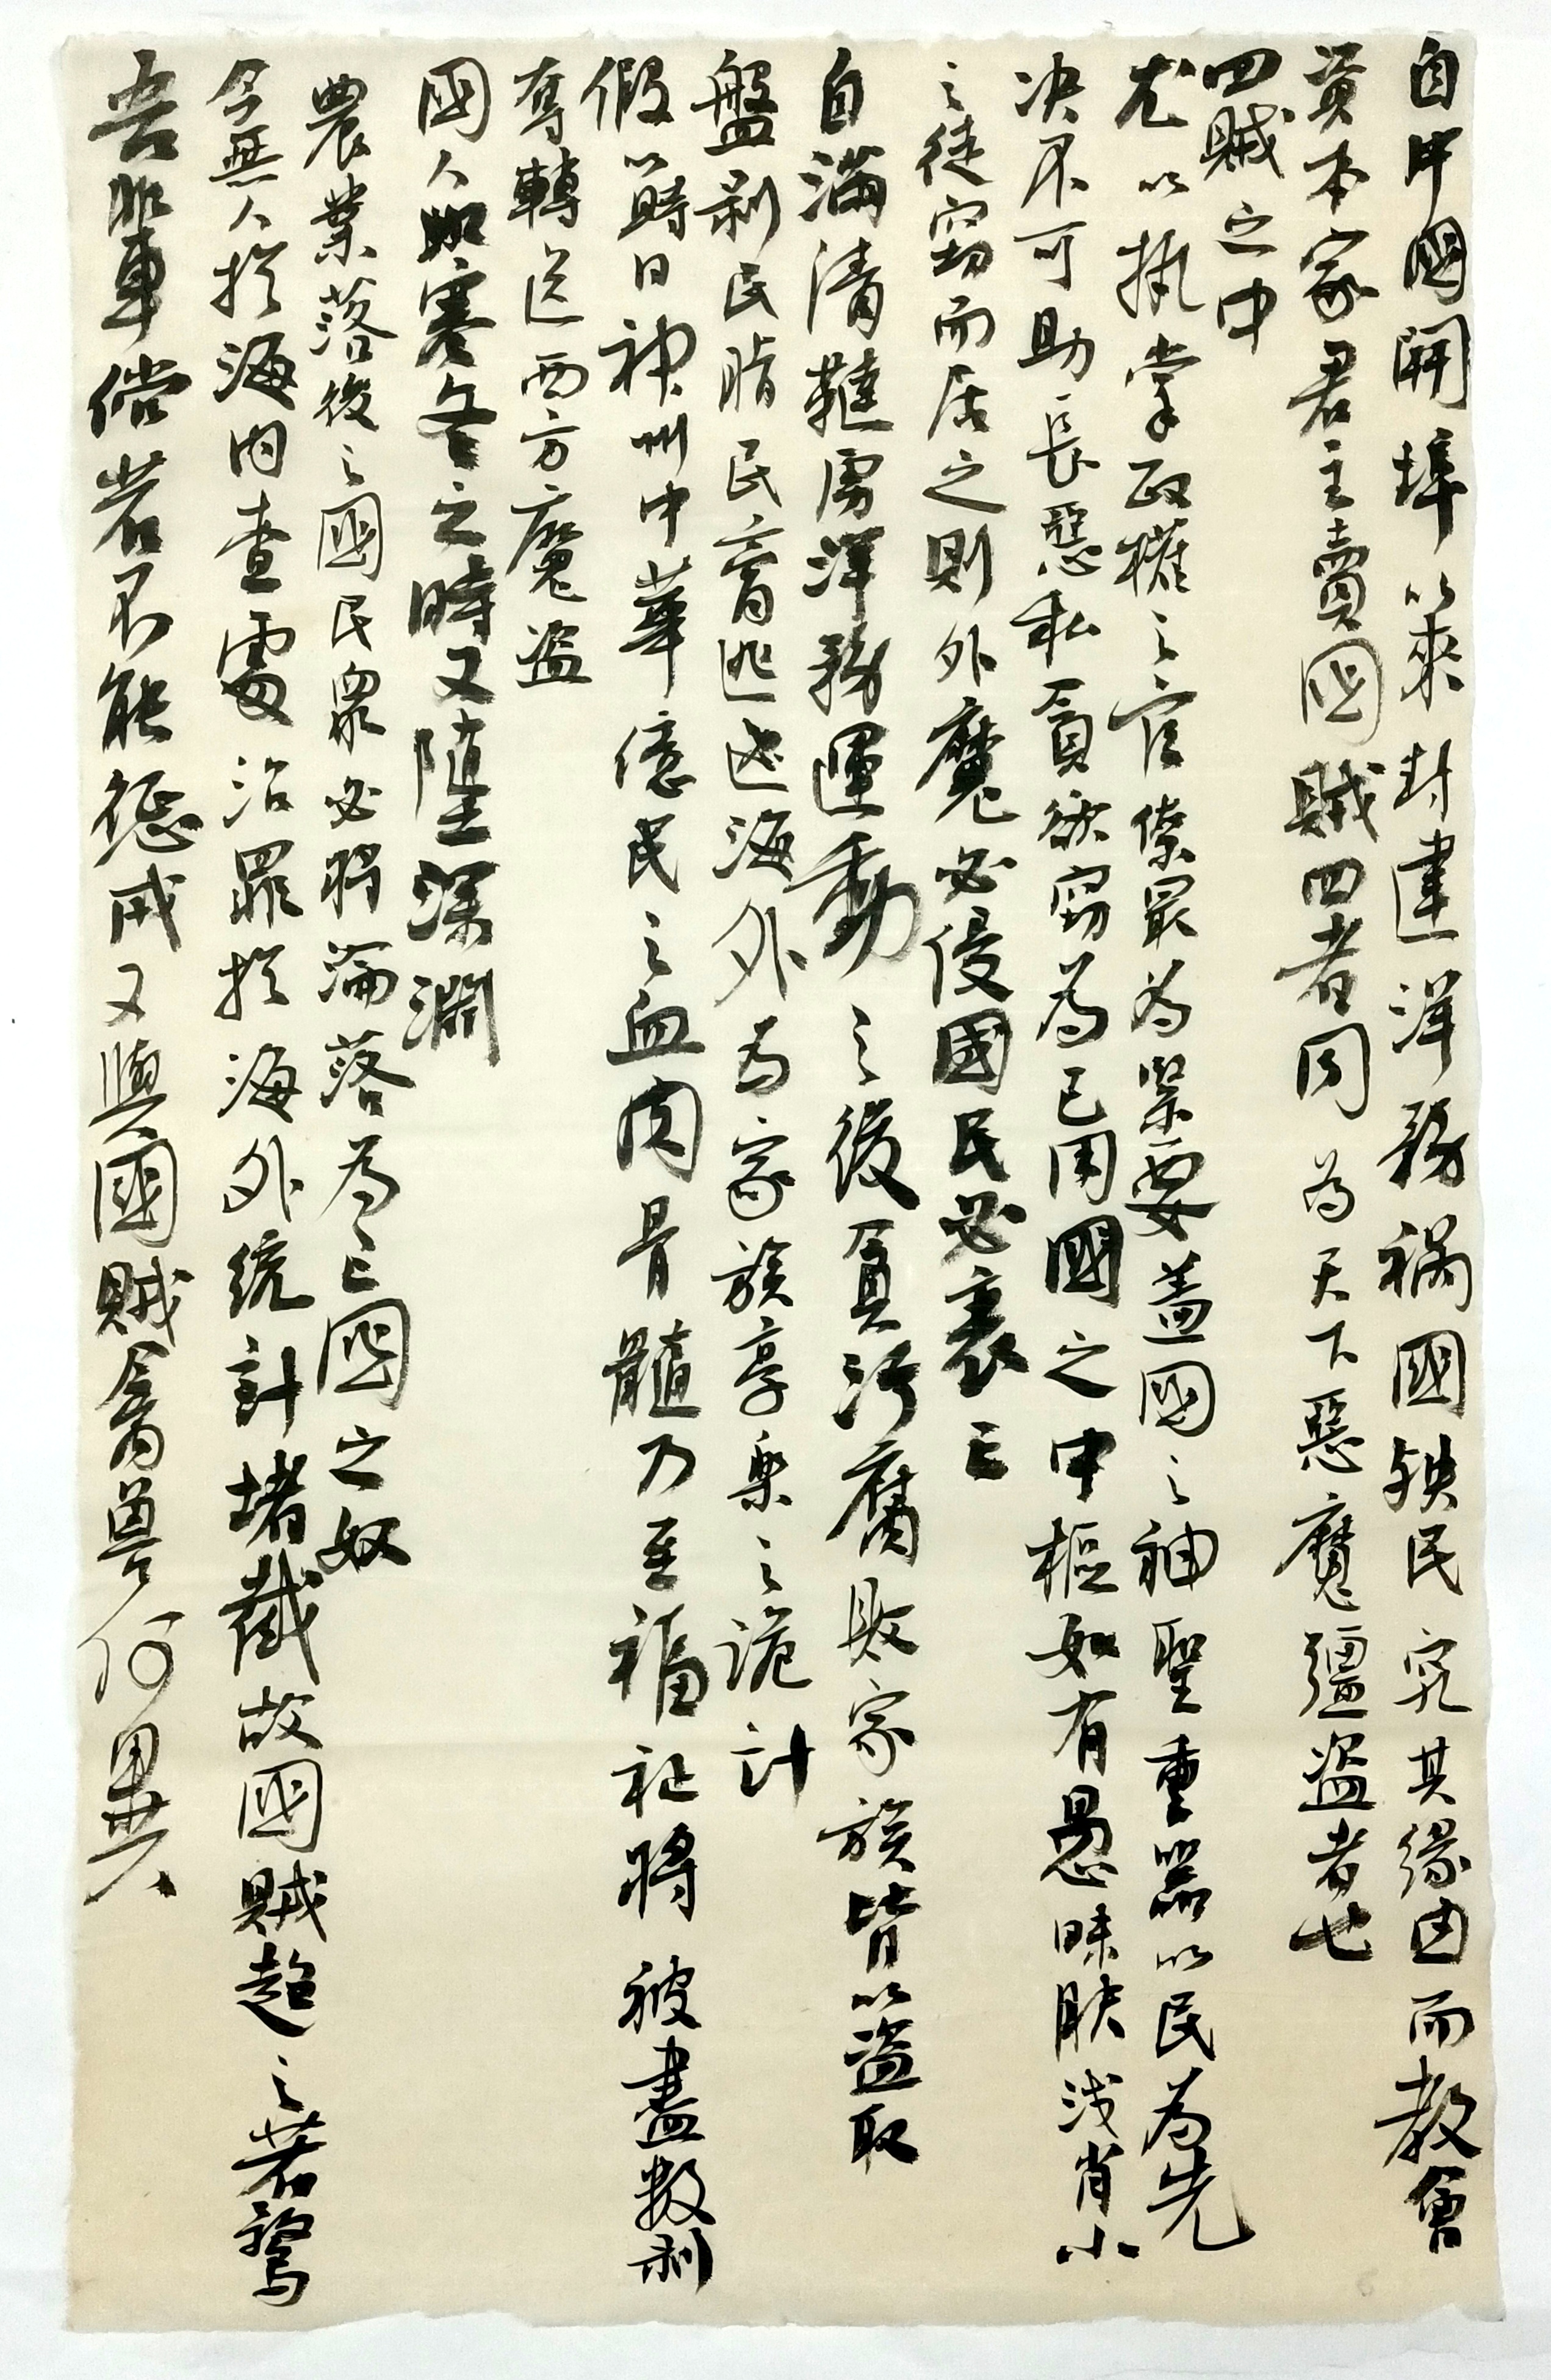 自中國開埠以來封建洋務禍國殃民究其緣由而教會
資本家君主賣國賊四者同為天下惡魔疆盜者也
四賊之中
尤以執掌政權之官僚最為緊要蓋國之神聖重器以民為先
决不可助長惡私貪欲竊為己用國之中樞如有愚昧膚淺肖小
之徒竊而居之則外魔必侵國民必衰亡
自滿清韃虜洋務運動之後貪污腐敗家族皆以盜取
盤剥民脂民膏逃逃海外為家族享樂之詭計
假以時日神州中華億民之血肉骨髓乃至福祉將被盡數剥
奪轉送西方魔盜
國人如寒冬之時又墮深淵
農業落後之國民衆必將淪落為亡國之奴
今無人於海内查處治罪於海外統計堵截故國賊趨之若鶩
吾輩儻若不能懲戒又與國賊禽獸何異